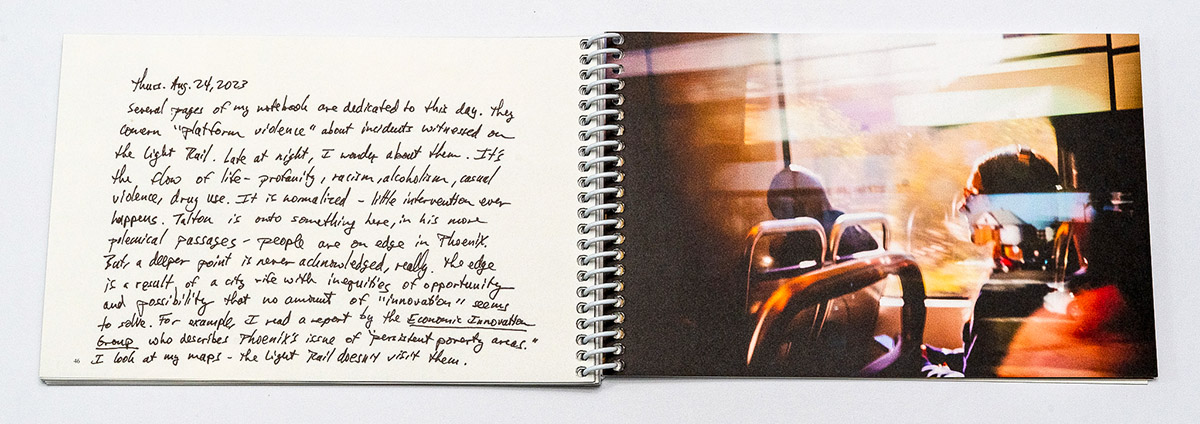 Thurs. Aug. 24, 2023
Several pages of my notebook are dedicated to this day. They
concern "platform violence" about incidents witnessed on
the Light Rail. Late at night, I wonder about them. It's
the flow of life - profanity, racism, alcoholism, casual
violence, drug use. It is normalized - little intervention ever
happens. Talton is onto something here, in his more
polemical passages - people are on edge in Phoenix.
But, a deeper point is never acknowledged, really. The edge
is a result of a city rife with inequities of opportunity
and possibility that no amount of "innovation" seems
to solve. For example, I read a report by the Economic Innovation
Group who describes Phoenix's issue of "persistent poverty areas."
I look at my maps - the Light Rail doesn't visit them.
46